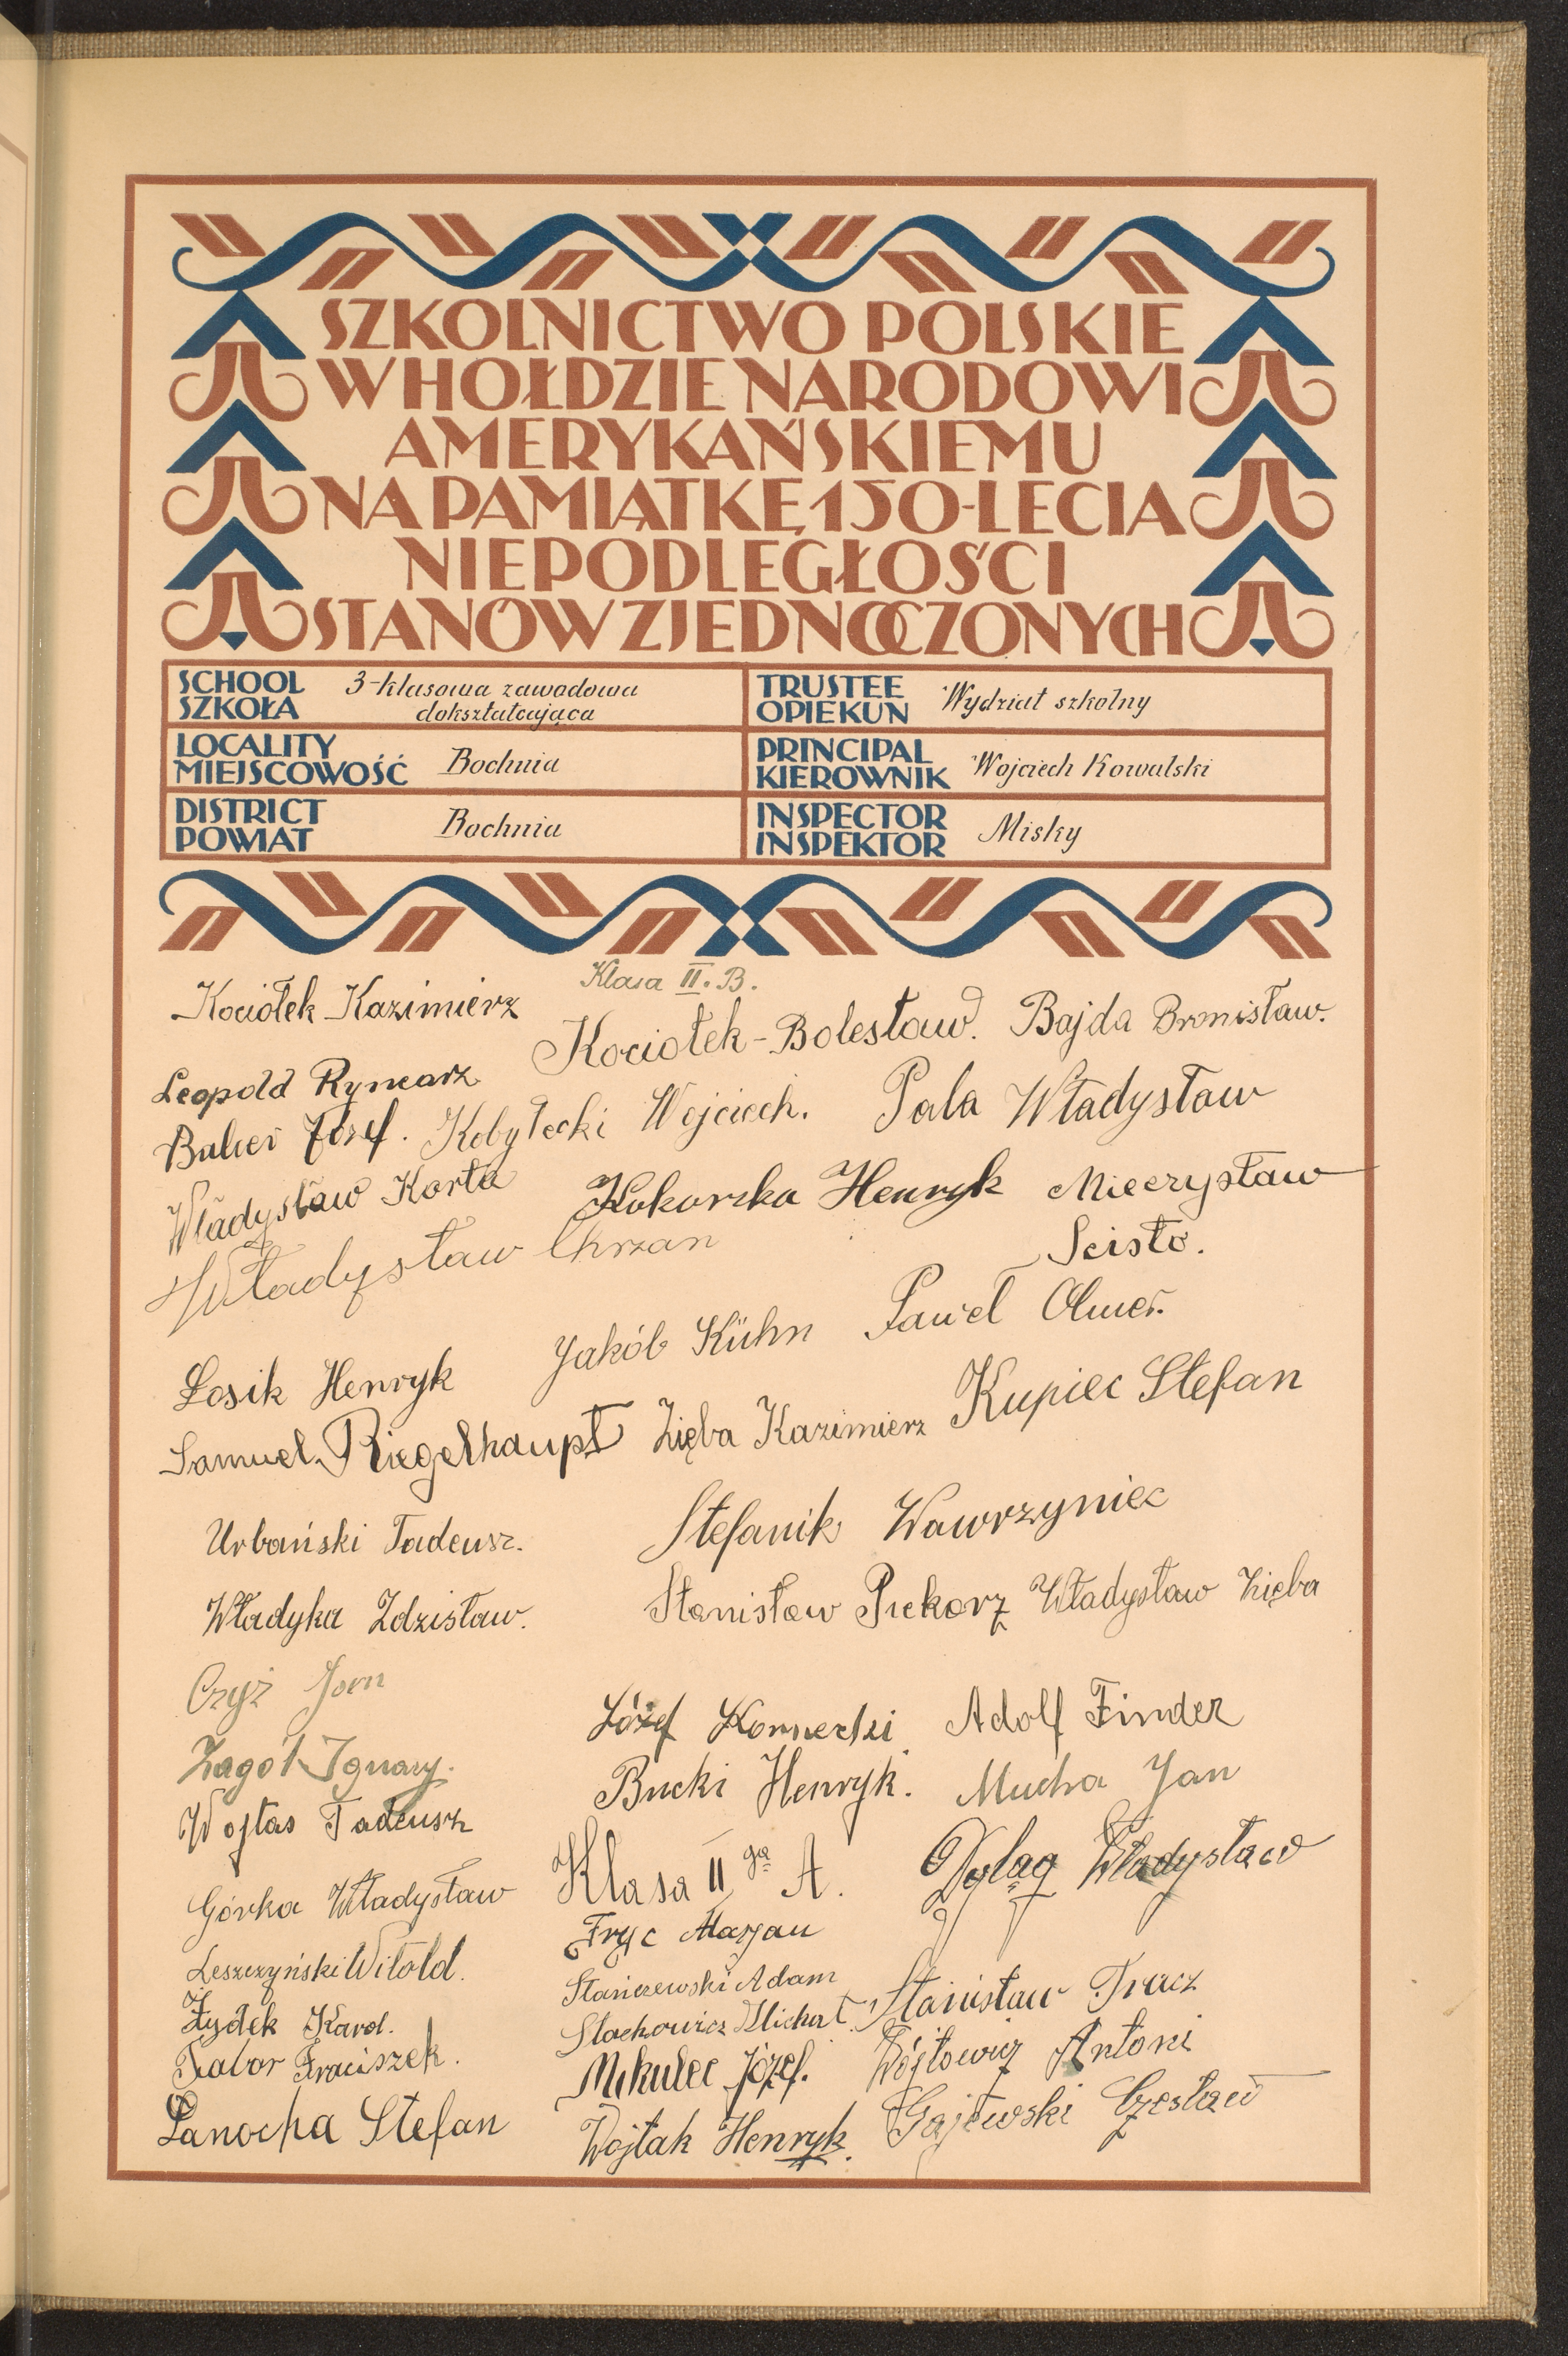 SZKOLNICTWO POLSKIE
W HOŁDZIE NARODOWI
AMERYKAŃSKIEMU
NA PAMIĄTKĘ 150-LECIA
NIEPODLEGŁOŚCI
STANÓW ZJEDNOCZONYCH
SCHOOL
SZKOŁA
3-klasowa zawodowa
dokształcająca
TRUSTEE
OPIEKUN
Wydział szkolny
LOCALITY
MIEJSCOWOŚĆ
Bochnia
PRINCIPAL
KIEROWNIK
Wojciech Kowalski
DISTRICT
POWIAT
Bochnia
INSPECTOR
INSPEKTOR
Misky
Klasa II. B.
Kociołek Kazimierz
Kociołek-Bolesław. Bajda Bronisław.
Leopold Rymarz
Józef. Kobyłecki Wojciech. Pala Władysław
Władysław Korta Kokoszka Henryk Mieczysław
Scisło.
Władysław Chrzan
Jakób Kühn Paweł
Łosik Henryk
Samuel Riegelhaupt Zięba Kazimierz Kupiec Stefan
Urbański Tadeusz. Stefanik Wawrzyniec
Władyka Zdzisław. Stanisław Piekarz Władysław Zięba
Czyż Jan
Józef Kornecki Adolf Finder
Żagół Ignacy.
Bucki Henryk. Mucha Jan
Wojtas Tadeusz
Klasa II ga A. Dyląg Władysław
Górka Władysław
Fryc Marjan
Leszczyński Witold.
Staniszewski Adam
Stanisław Tracz
Żydek Karol.
Stachowicz Michał.
Tabor Fraciszek.
Mikulec Józef. Wójtowicz Antoni
Panocha Stefan
Wojtak Henryk. Gajewski Czesław